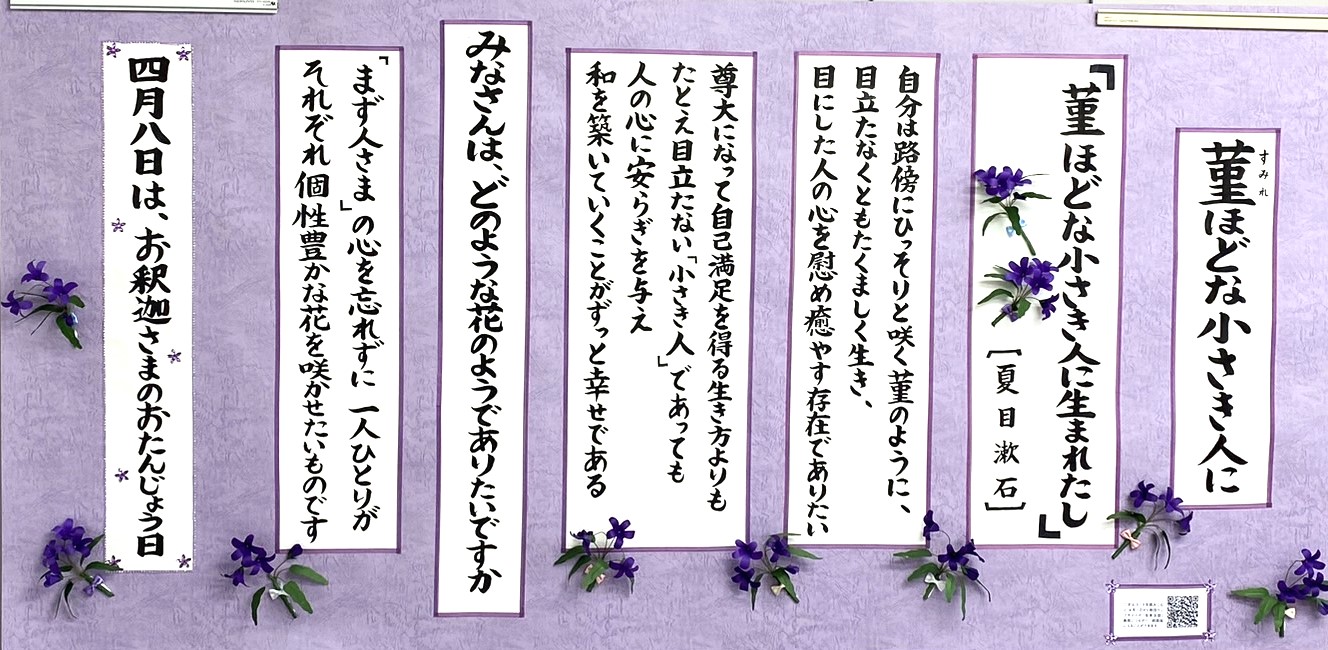 菫ほどな小さき人に
すみれ
『菫ほどな小さき人に生まれたし』
[夏目漱石]
自分は路傍にひっそりと咲く菫のように、
目立たなくともたくましく生き、
目にした人の心を慰め癒やす存在でありたい
尊大になって自己満足を得る生き方よりも
たとえ目立たない「小さき人」であっても
人の心に安らぎを与え
和を築いていくことがずっと幸せである
みなさんは、どのような花のようでありたいですか
「まず人さま」の心を忘れずに 一人ひとりが
それぞれ個性豊かな花を咲かせたいものです
四月八日は、お釈迦さまのおたんじょう日